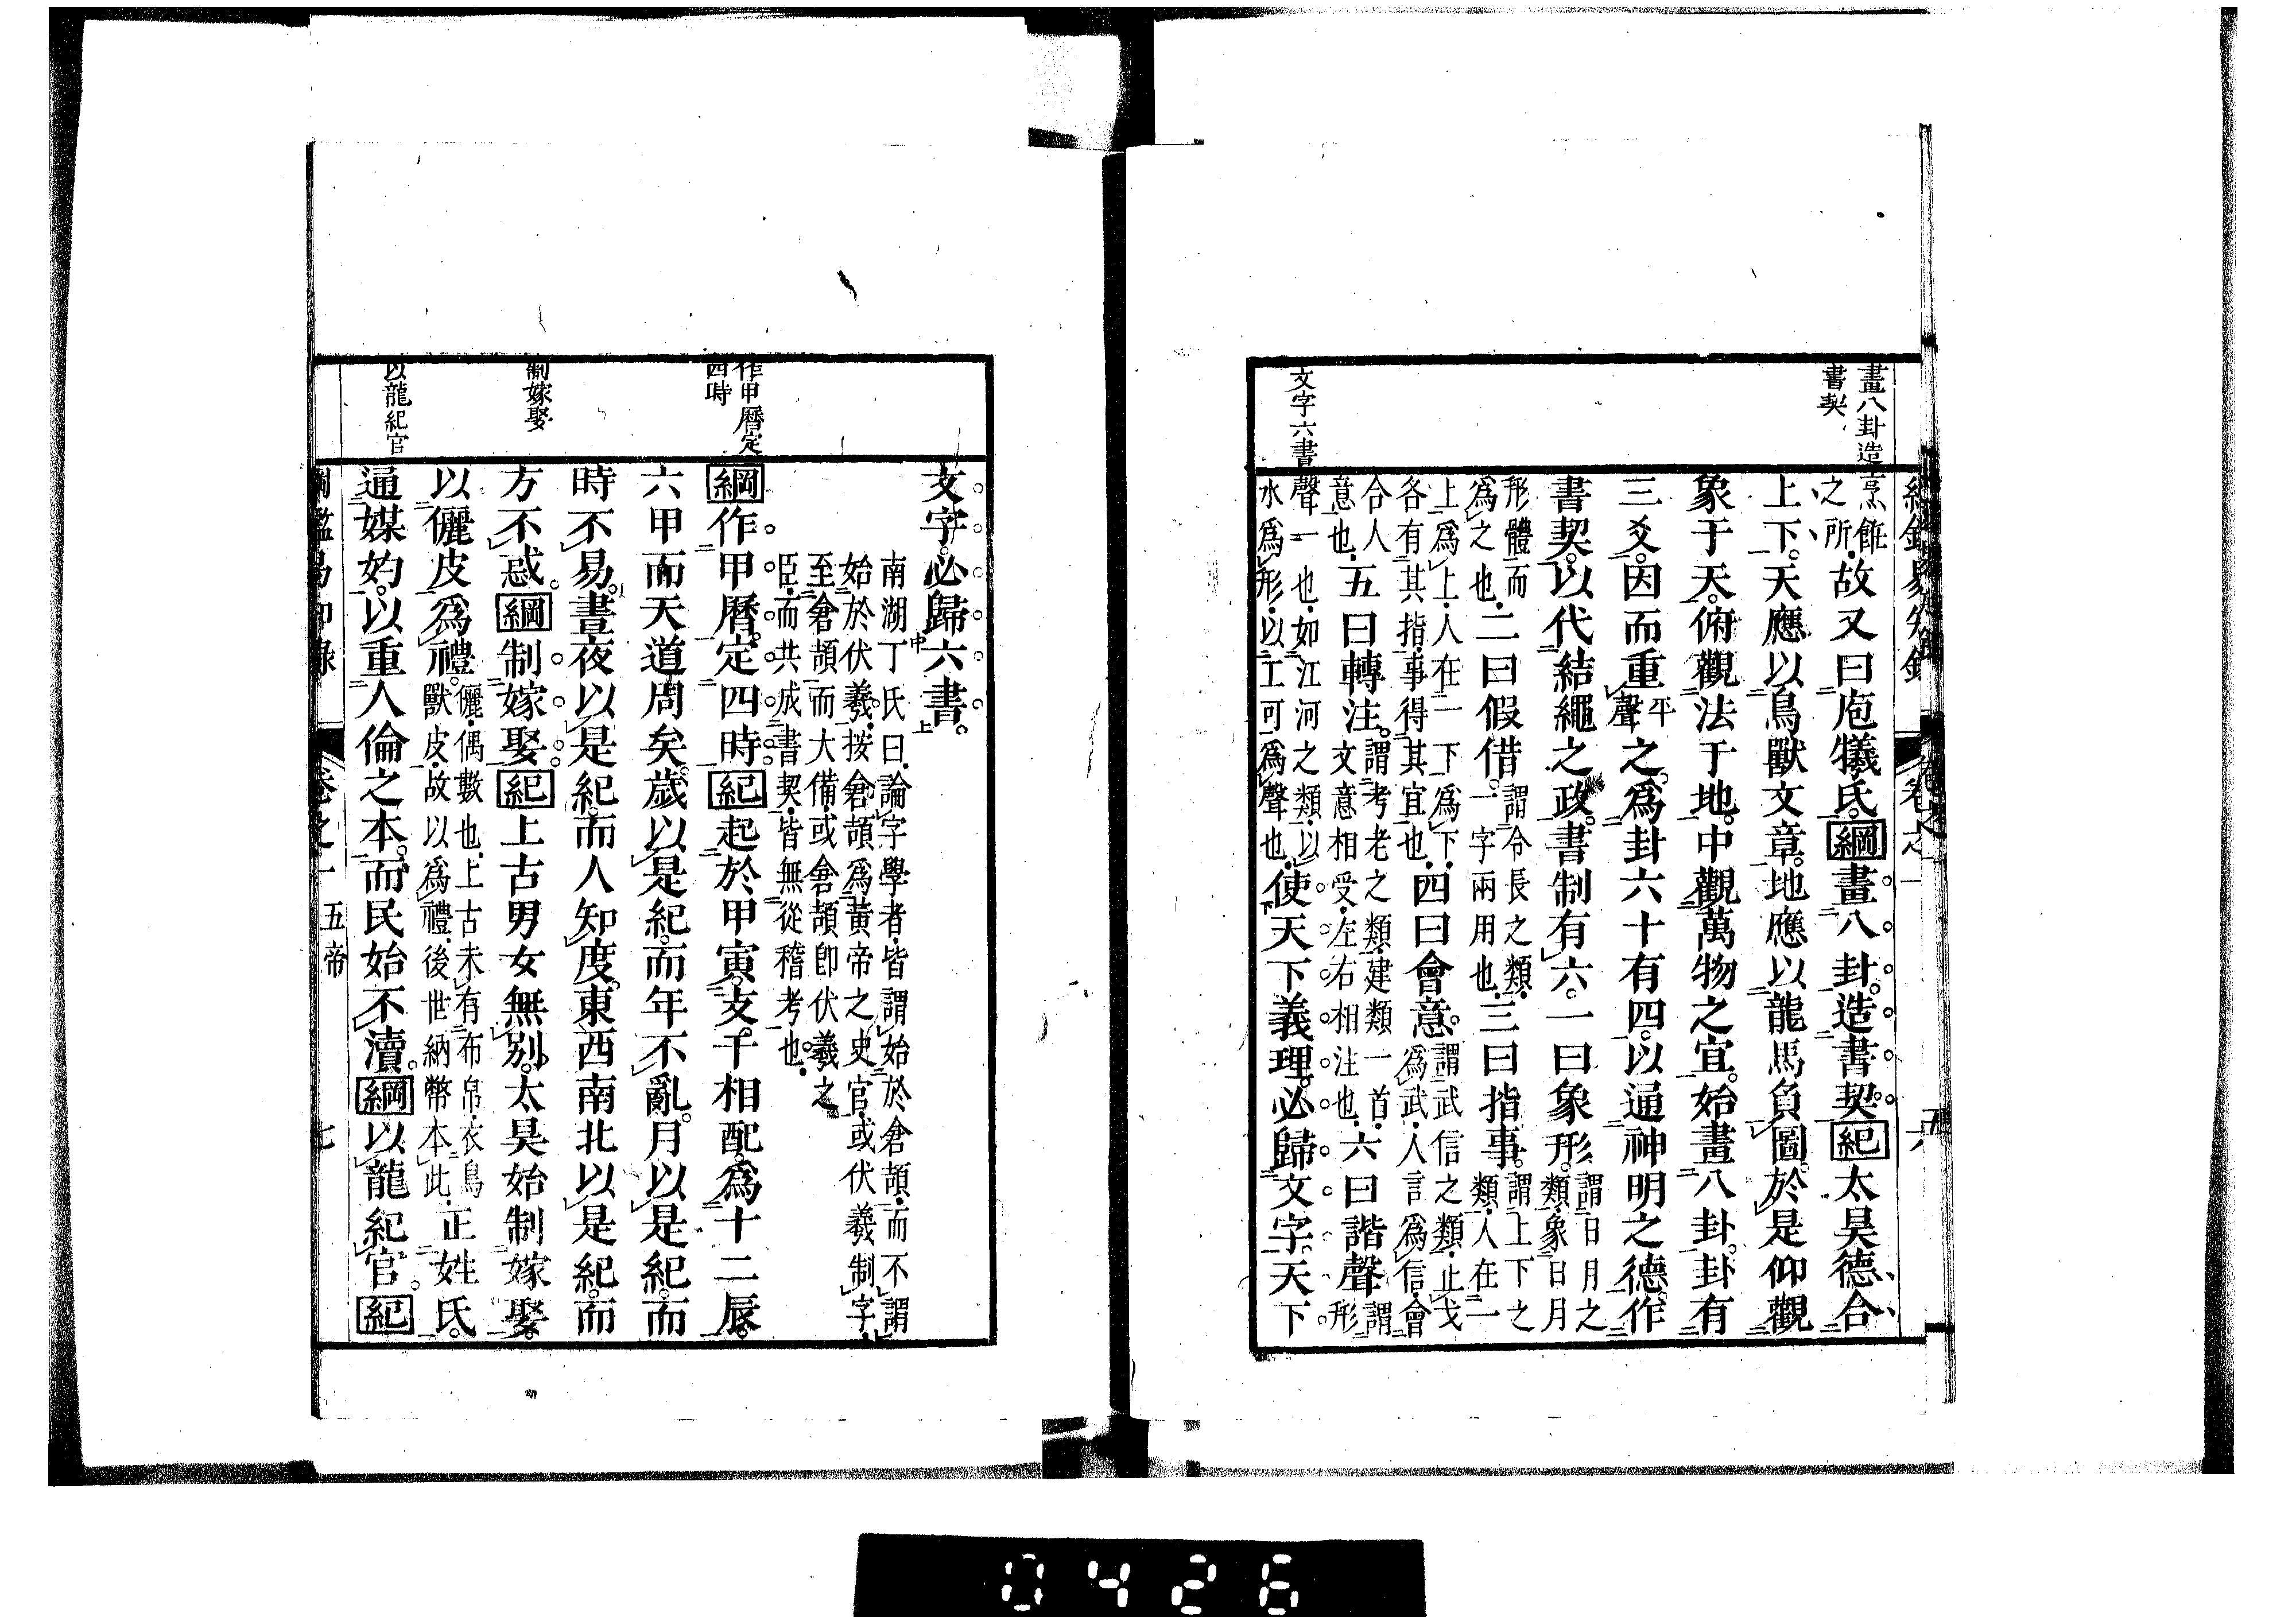 畫八卦造
書契
文字六書
烹飪
之所故又曰庖犧氏綱畫八卦造書契紀太昊德合
上下天應以鳥獸文章地應以龍馬負圖於是仰觀
象于天俯觀法于地中觀萬物之宜始畫八卦卦有
三爻因而重平聲之爲卦六十有四以通神明之德作
書契以代結繩之政書制有六一曰象形謂日月之類象日月
形體而爲之也二曰假借謂令長之類一字兩用也三曰指事謂上下之類人在一
上爲上人在一下爲下各有其指事得其宜也四曰會意謂武信之類止戈爲武人言爲信會
合人意也五曰轉注謂考老之類建類一首文意相受左右相注也六曰諧聲謂形
聲一也如江河之類以水爲形以工可爲聲也使天下義理必歸文字天下
文字必歸六書
南湖丁氏曰論字學者皆謂始於倉頡而不謂
始於伏羲按倉頡爲黃帝之史官或伏羲制字
至倉頡而大備或倉頡卽伏羲之
臣而共成書契皆無從稽考也
作甲曆定
四時
制嫁娶
以龍紀官
綱作甲曆定四時紀起於甲寅支干相配爲十二辰
六甲而天道周矣歲以是紀而年不亂月以是紀而
時不易晝夜以是紀而人知度東西南北以是紀而
方不惑綱制嫁娶紀上古男女無別太昊始制嫁娶
以儷皮爲禮儷偶數也上古未有布帛衣鳥獸皮故以爲禮後世納幣本此正姓氏
通媒妁以重人倫之本而民始不瀆綱以龍紀官紀
卷之一 五帝 七
0426